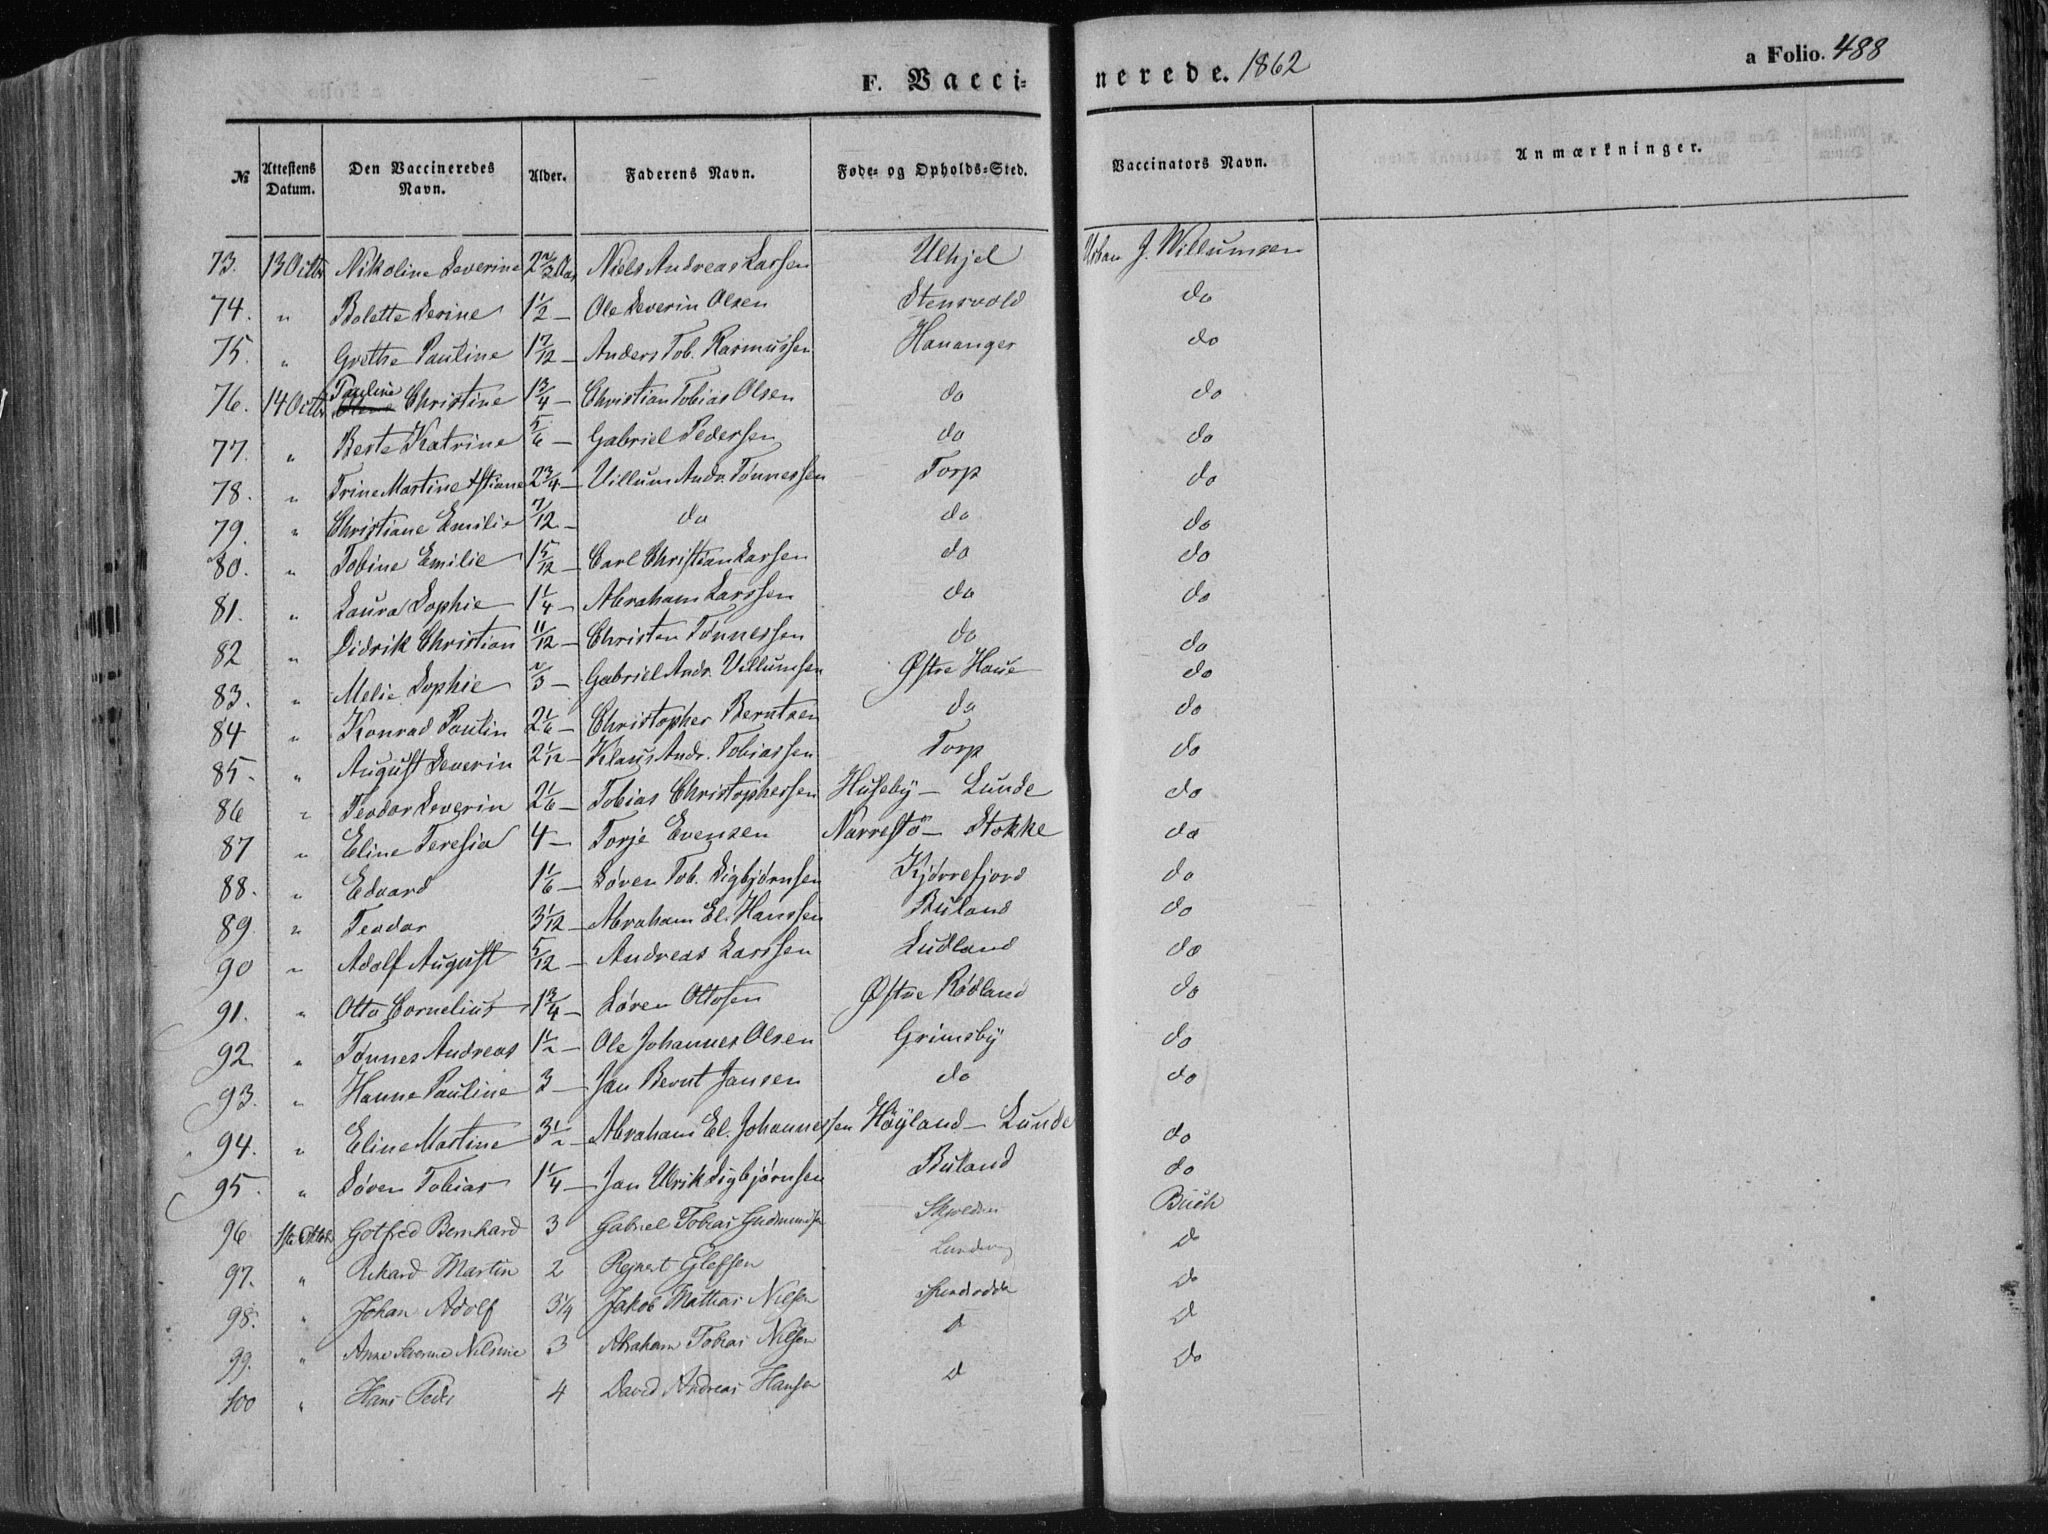 F. Vacci- nerede. 1862 a Folio. 488
№ Attestens Datum. Den Vaccineredes Navn. Alder. Faderens Navn. Føde- og Opholds-Sted. Vaccinators Navn. Anmærkninger.
73. 13 Octbr Nikoline Severine 2 2/3 Aar Niels Andreas Larssen Ulhjel Urban J. Willumsen
74. " Bolette Serine 1 1/2 — Ole Severin Olsen Stensvold do
75. " Grethe Pauline 1 7/12 — Anders Tob. Rasmussen Hananger do
76. 14 Octbr Pauline Christine 1 3/4 — Christian Tobias Olsen do do
77. " Berte Katrine 5/6 — Gabriel Pedersen do do
78. " Trine Martine Astiane 2 3/4 — Villum Andr. Tønnessen Torp do
79. " Christiane Emilie 7/12 — do do do
80. " Tobine Emilie 1 5/12 — Carl Christian Larssen do do
81. " Laura Sophie 1 1/4 — Abraham Larssen do do
82 " Didrik Christian 11/12 — Christen Tønnessen do do
83. " Melie Sophie 2/3 — Gabriel Andr. Villumsen Østre Haue do
84 " Konrad Paulin 2 1/6 — Christopher Berntsen do do
85. " August Severin 2 1/12 — Klaus Andr. Tobiassen Torp do
86 " Teodor Severin 2 1/6 — Tobias Christophersen Huseby — Lunde do
87 " Eline Teresia 4 — Torje Evensen Narrestö — Stokke do
88. " Edvard 1 1/6 — Søren Tob. Sigbjørnsen Kjørrefjord do
89. " Teodor 3 1/12 — Abraham El. Hanssen Buland do
90 " Adolf August 5/12 — Andreas Larssen Ludland do
91. " Otto Cornelius 1 3/4 — Søren Ottosen Østre Rödland do
92 " Tønnes Andreas 1 1/2 — Ole Johannes Olsen Grimsby do
93. " Hanne Pauline 3 — Jan Bernt Jansen do do
94. " Eline Martine 3 1/2 — Abraham El. Johannessen Höyland — Lunde do
95. " Søren Tobias 1 1/4 — Jan Ulrik Sigbjørnsen Buland do
96 1ste Gotfred Bernhard 3 Gabriel Tobias Gudmundsen Buch
97. " Rikard Martin 2 Rejnert Do
98. " Johan Adolf 3 1/4 Jakob Mathias Nilsen Do
99. " Anne Severine Nilsine 3 Abraham Tobias Nilsen D D
100 " Hans Peder 4 David Andreas Hansen D Do